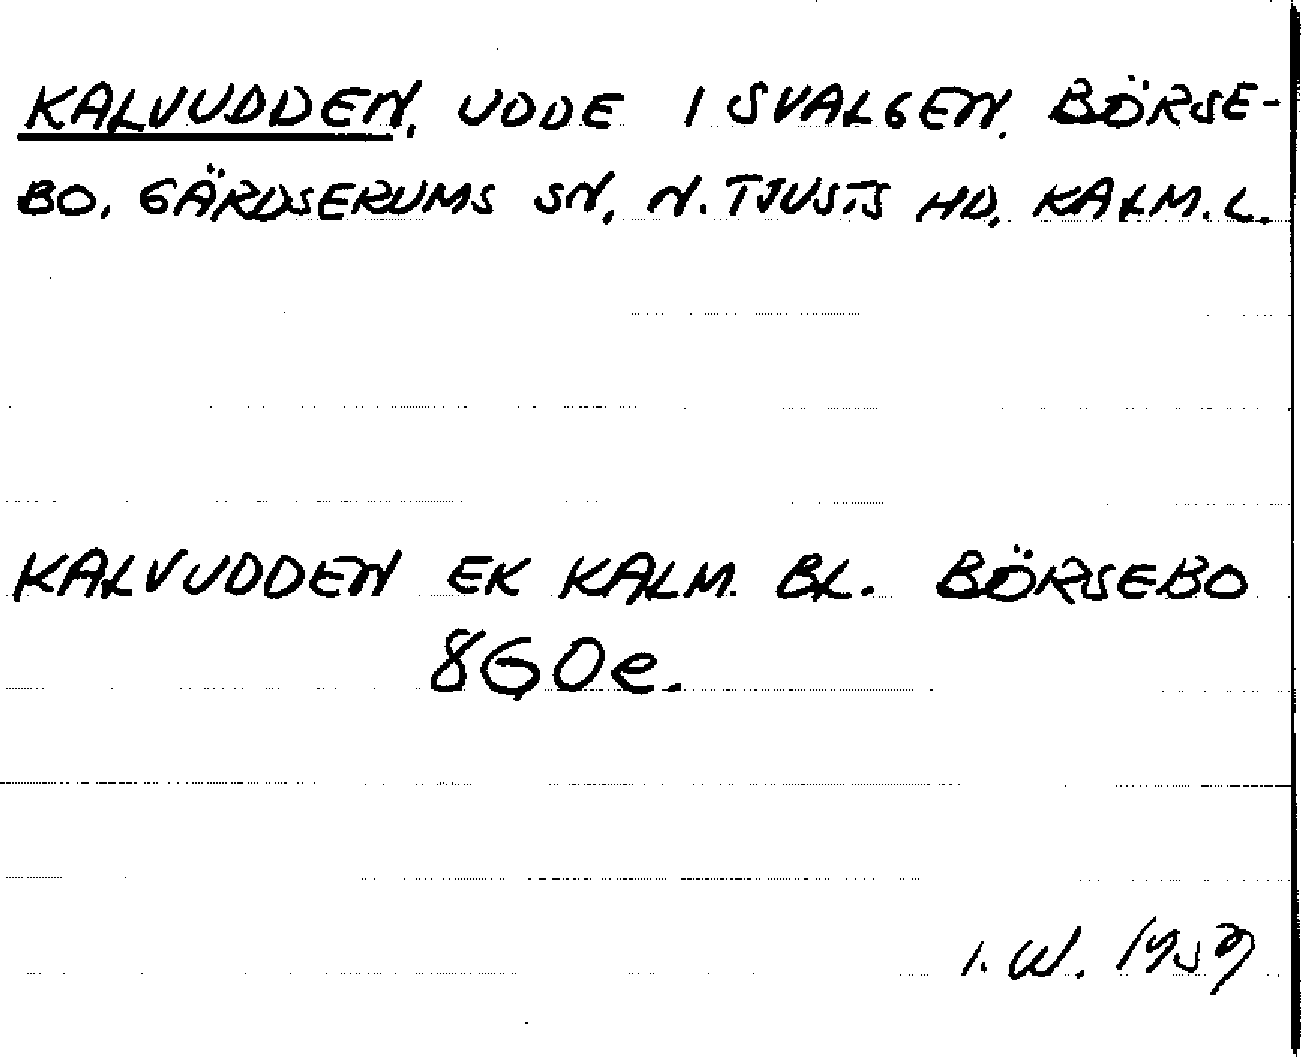 KALVUDDEN, UDDE I SVALGEN, BÖRSE-
BO, GÄRDSERUMS SN, N. TJUSTS HD, KALM. L.
KALVUDDEN EK KALM. BL. BÖRSEBO
8G0e.
I. W. 1959